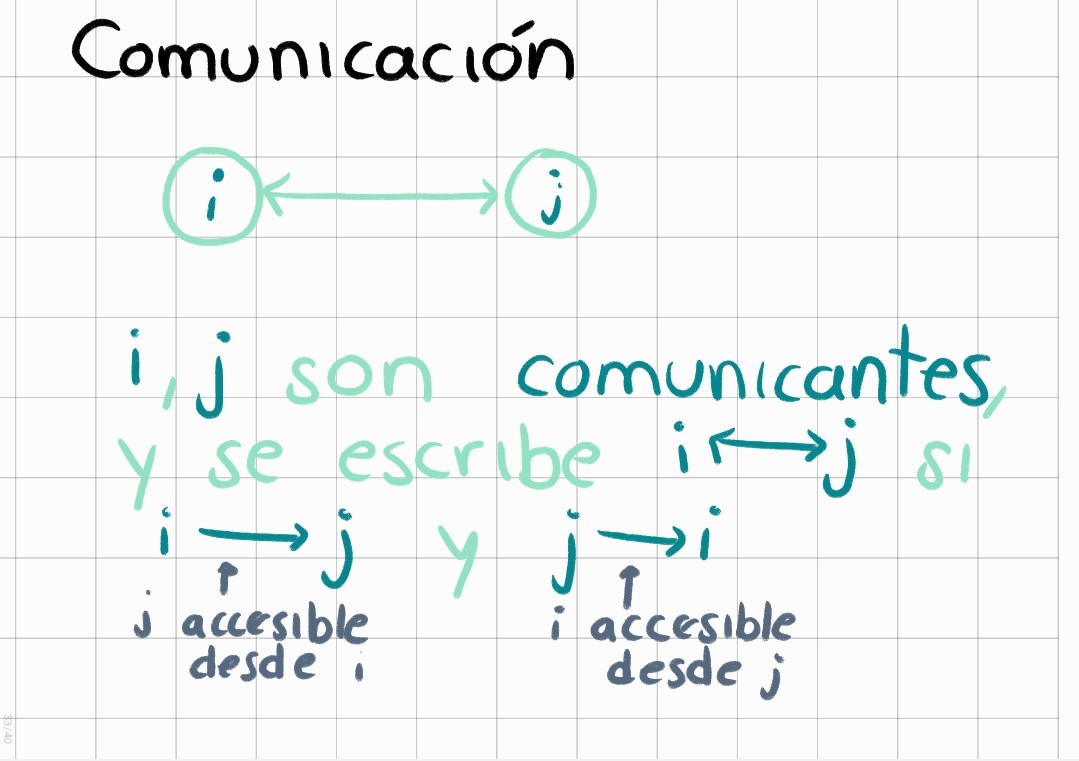 Comunicación
i ⟷ j
i, j son comunicantes,
y se escribe i ⟷ j si
i ⟶ j y j ⟶ i
↑ ↑
j accesible i accesible
desde i desde j
33/40